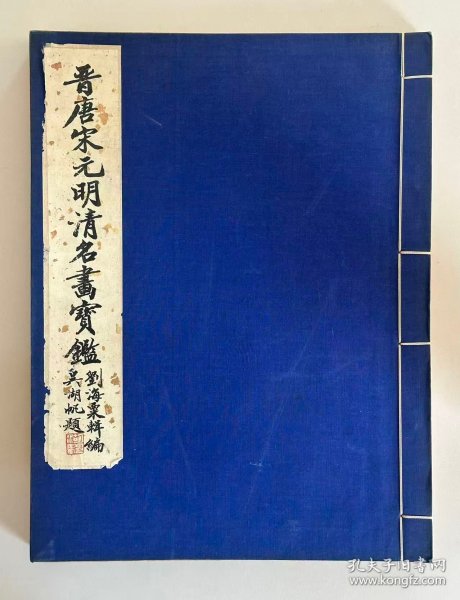 晋唐宋元明清名畫寳鑑
劉海粟輯編
吳湖帆題
孔夫子旧书网
www.kongfz.com